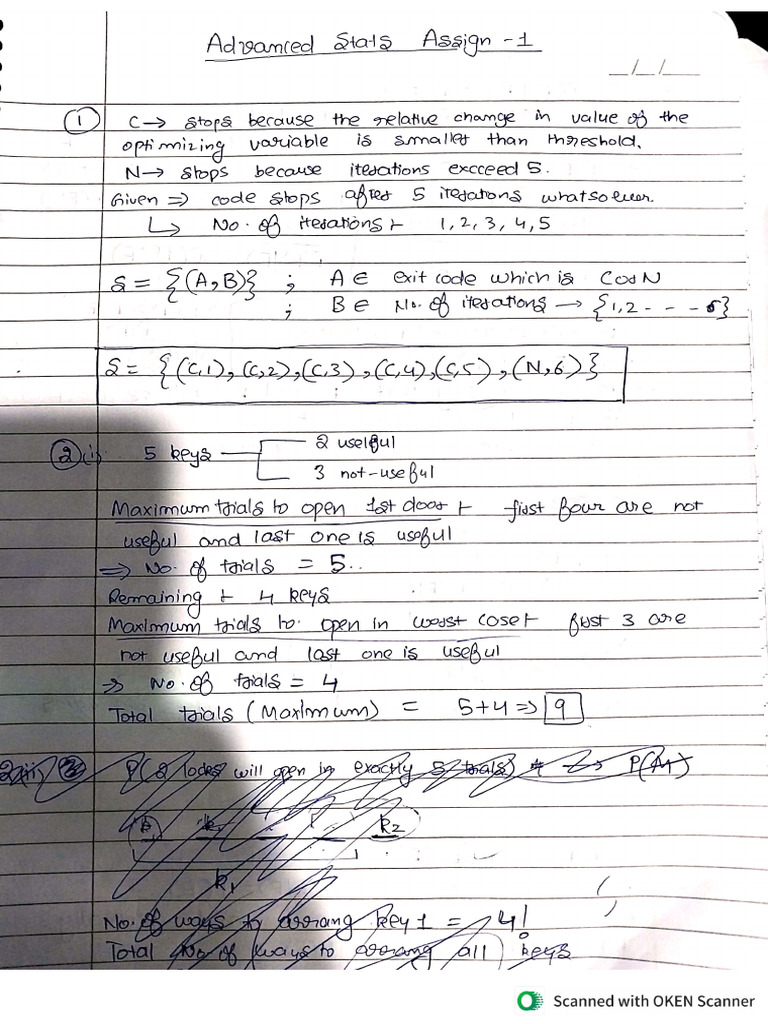 Advanced Stats Assign -1
_/_/_
1 C → stops because the relative change in value of the
optimizing variable is smaller than threshold.
N → stops because iterations exceed 5.
Given ⇒ code stops after 5 iterations whatsoever.
↳ No. of iterations :- 1, 2, 3, 4, 5
S = {(A, B)} ; A ∈ exit code which is C or N
; B ∈ No. of iterations → {1,2 - - - 6}
S = {(C,1), (C,2), (C,3), (C,4), (C,5), (N,6)}
2 (i) 5 keys
2 useful
3 not-useful
Maximum trials to open 1st door :- first four are not
useful and last one is useful
⇒ No. of trials = 5..
Remaining :- 4 keys
Maximum trials to open in worst case :- first 3 are
not useful and last one is useful
⇒ No. of trials = 4
Total trials (Maximum) = 5+4 ⇒ 9
2(ii) P(2 locks will open in exactly 5 trials) P(A1)
k2
k1
No. of ways to arrang key 1 = 4!
Total No of ways to arrang all keys
Scanned with OKEN Scanner